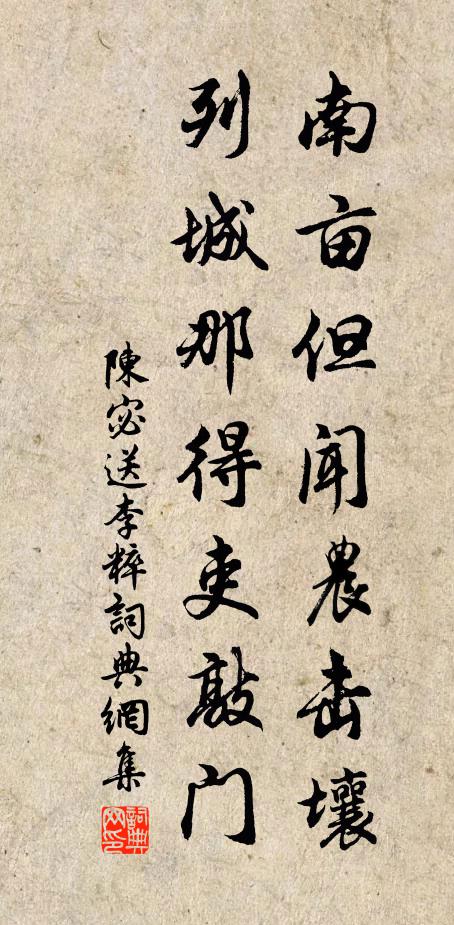 南亩但闻農击壤
列城那得吏敲门
陳宓送李粹詞典網集
詞典网印